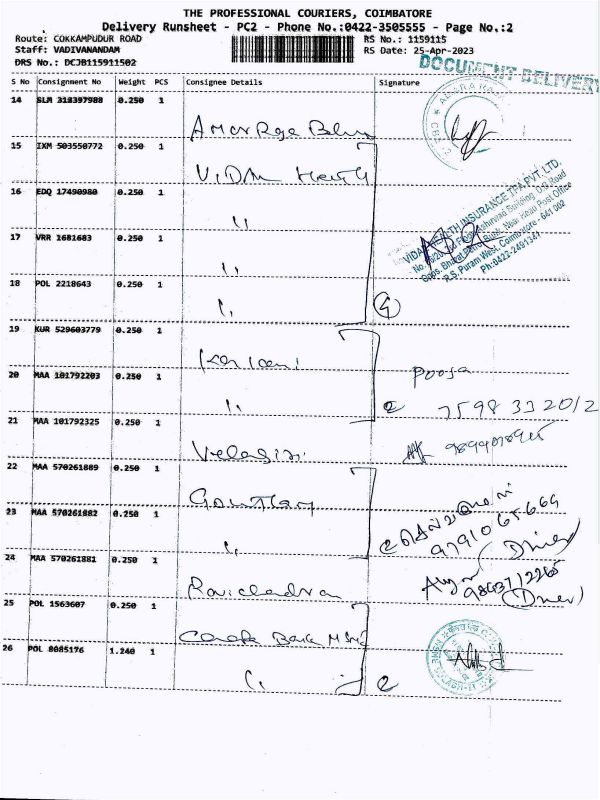 THE PROFESSIONAL COURIERS, COIMBATORE
Delivery Runsheet - PC2 - Phone No.:0422-3505555 - Page No.:2
Route: COKKAMPUDUR ROAD RS No.: 1159115
Staff: VADIVANANDAM RS Date: 25-Apr-2023
DRS No.: DCJB115911502
DOCUMENT DELIVERY
S No Consignment No Weight PCS Consignee Details Signature
14 SLM 318397988 0.250 1
15 IXM 503550772 0.250 1
16 EDQ 17490980 0.250 1
〃
17 VRR 1681683 0.250 1
〃
VIDAL HEALTH INSURANCE TPA PVT. LTD.
R.S. Puram West, Coimbatore - 641 002
Ph:0422-2491341
18 POL 2218643 0.250 1
〃 4
19 KUR 529603779 0.250 1
20 MAA 101792203 0.250 1 Pooja
〃 2 7598 33 2012
21 MAA 101792325 0.250 1
22 MAA 570261889 0.250 1
Goutham
23 MAA 570261882 0.250 1
〃 9791065669
(Driver)
24 MAA 570261881 0.250 1
Ravichandran (Driver)
25 POL 1563607 0.250 1
26 POL 8085176 1.240 1
〃 2